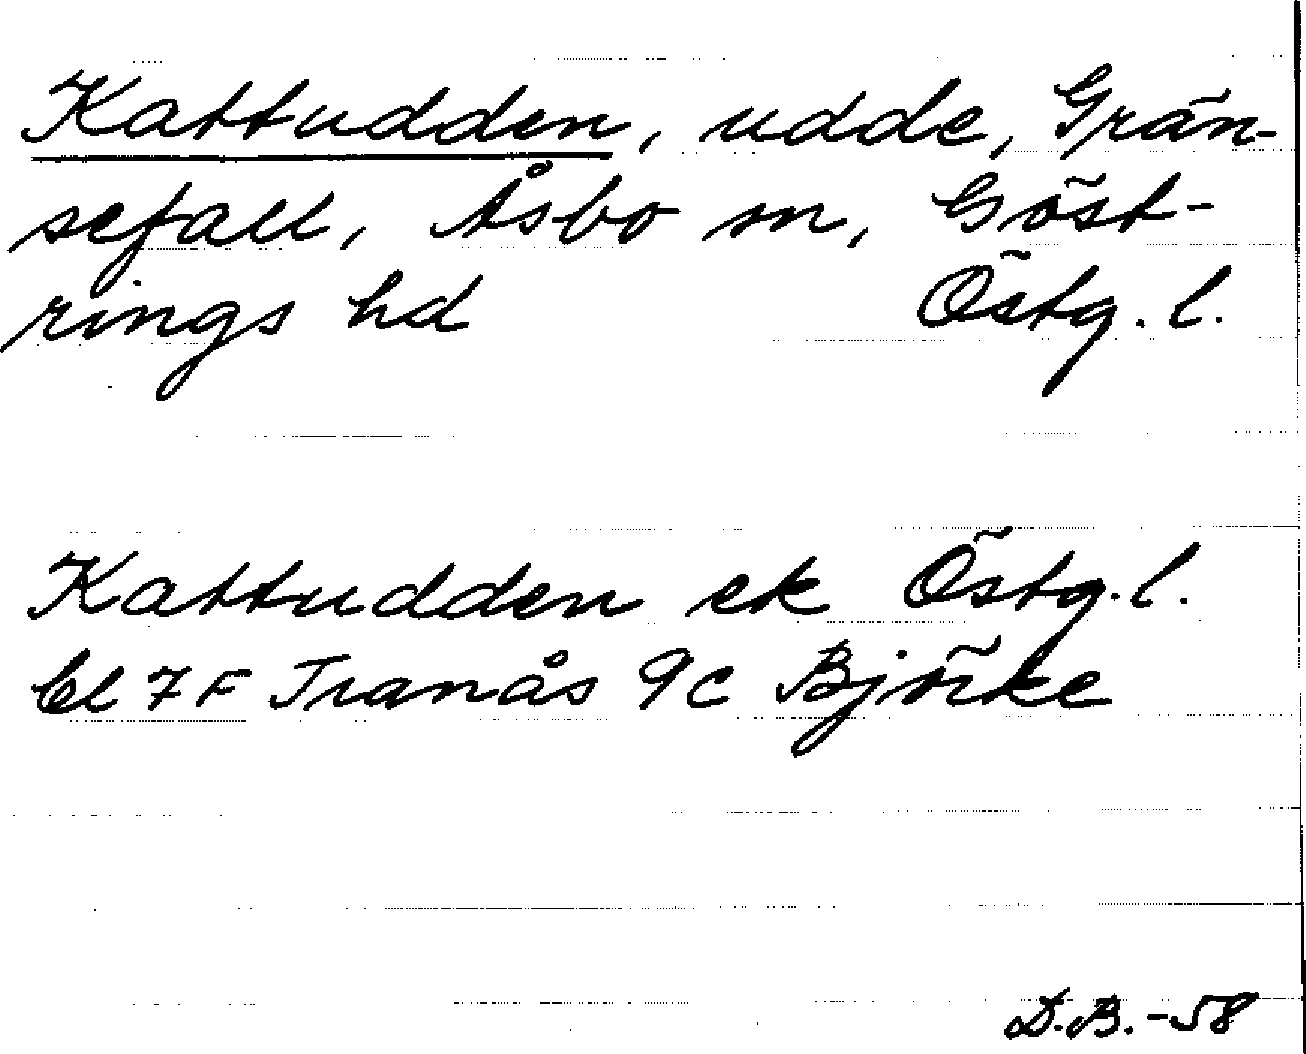 Kattudden, udde, Grän-
sefall, Åsbo sn, Göst-
rings hd Östg. l.
Kattudden ek Östg. l.
bl 7F Tranås 9c Björke
D.B. -58